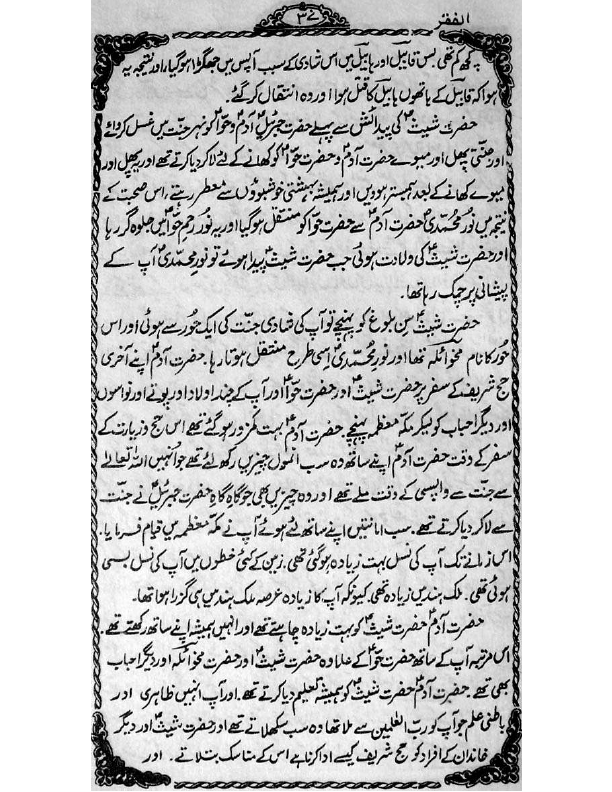 الفقر
۳۷
کچھ کم تھی۔ بس قابیل اور ہابیل میں اس شادی کے سبب آپس میں جھگڑا ہو گیا، اور نتیجہ یہ
ہوا کہ قابیل کے ہاتھوں ہابیل کا قتل ہوا اور وہ انتقال کر گئے۔
حضرت شیثؑ کی پیدائش سے پہلے حضرت جبرئیلؑ آدمؑ و حواؑ کو نہر جنت میں غسل کروائے
اور جنتی پھل اور میوے حضرت آدمؑ و حضرت حواؑ کو کھانے کے لئے لا کر دیا کرتے تھے اور یہ پھل اور
میوے کھانے کے بعد ہمبستر ہو دیں اور ہمیشہ بہشتی خوشبوؤں سے معطر رہتے، اس صحبت کے
نتیجہ میں نورِ محمدیؐ حضرت آدمؑ سے حضرت حواؑ کو منتقل ہو گیا اور یہ نور رحم حواؑ میں جلوہ گر رہا
اور حضرت شیثؑ کی ولادت ہوئی جب حضرت شیثؑ پیدا ہوئے تو نورِ محمدیؐ آپ کے
پیشانی پر چمک رہا تھا۔
حضرت شیثؑ سن بلوغ کو پہنچے تو آپ کی شادی جنت کی ایک حُور سے ہوئی اور اس
حُور کا نام مخوائلہ تھا اور نورِ محمدیؐ اِسی طرح منتقل ہوتا رہا۔ حضرت آدمؑ اپنے آخری
حج شریف کے سفر پر حضرت شیثؑ اور حضرت حواؑ اور آپ کے چند اولاد اور پوتے اور نواسوں
اور دیگر احباب کو لیکر مکہ معظمہ پہنچے۔ حضرت آدمؑ بہت کمزور ہو گئے تھے اس حج و زیارت کے
سفر کے وقت حضرت آدمؑ اپنے ساتھ وہ سب انمول چیزیں رکھ لائے تھے جو اُنہیں اللہ تعالے
سے جنت سے واپسی کے وقت ملے تھے اور وہ چیزیں بھی جو گاہ گاہِ حضرت جبرئیلؑ نے جنت
سے لا کر دیا کرتے تھے۔ سب امانتیں اپنے ساتھ لئے ہوئے آپ نے مکہ معظمہ میں قیام فرمایا۔
اس زمانے تک آپ کی نسل بہت زیادہ ہو گئی تھی۔ زمین کے کئی خطوں میں آپ کی نسل بسی
ہوئی تھی۔ ملک ہند میں زیادہ تھی۔ کیونکہ آپ کا زیادہ عرصہ ملک ہند میں ہی گزرا ہوا تھا۔
حضرت آدمؑ حضرت شیثؑ کو بہت زیادہ چاہتے تھے اور انہیں ہمیشہ اپنے ساتھ رکھتے تھے۔
اس مرتبہ آپ کے ساتھ حضرت حواؑ کے علاوہ حضرت شیثؑ اور حضرت مخوائلہ اور دیگر احباب
بھی تھے۔ حضرت آدمؑ حضرت شیثؑ کو ہمیشہ تعلیم دیا کرتے تھے۔ اور آپ انہیں ظاہری اور
باطنی علم جو آپ کو ربّ العٰلمین سے ملا تھا وہ سب سکھلاتے تھے اور حضرت شیثؑ اور دیگر
خاندان کے افراد کو حج شریف کیسے ادا کرنا ہے اس کے مناسک بتلاتے۔ اور